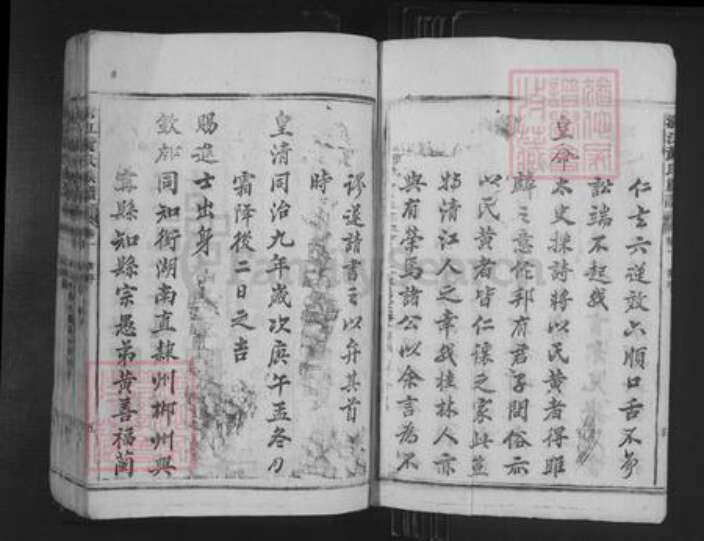 仁去六逆效六順口舌不爭
訟端不起我
皇命太史採詩將以民黃者得雎
麟之意作邦有君子問俗示
以民黃者皆仁讓之家此豈
特清江人之幸我桂林人亦
與有榮焉諸公以余言為不
謬遂請書之以弁其首
時
皇清同治九年歲次庚午孟冬月
霜降後二日之吉
賜進士出身
欽加同知銜湖南直隸州郴州興
甯縣知縣宗愚弟黃善福蘭
FamilySearch